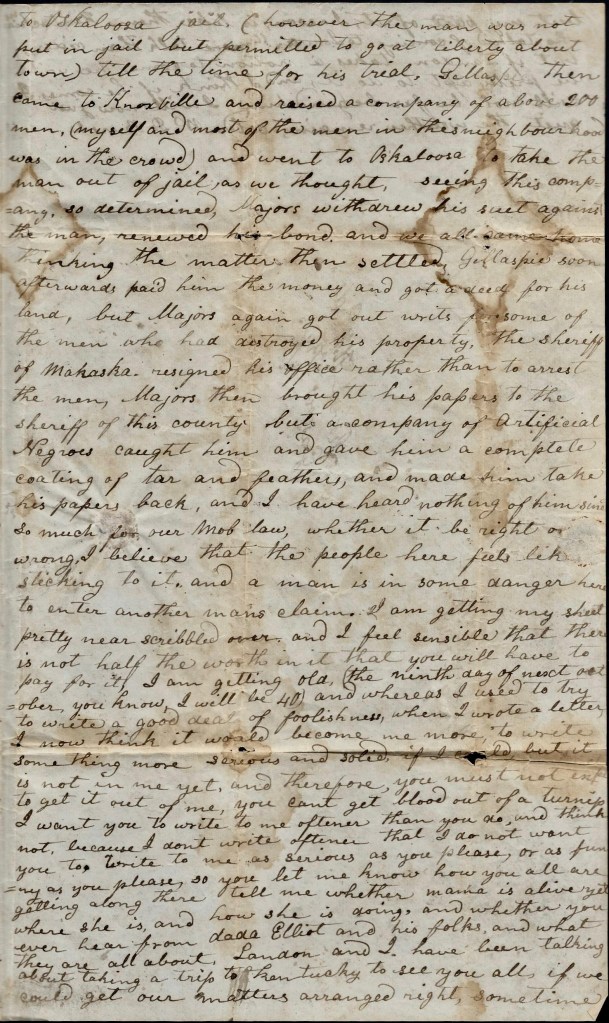 to Oskaloosa jail (however the man was not
put in jail but permitted to go at liberty about
town) till the time for his trial, Gillaspi then
came to Knoxville and raised a company of above 200
men, (myself and most of the men in this neighbourhood
was in the crowd) and went to Oskaloosa to take the
man out of jail, as we thought, seeing this comp-
=any, so determined, Majors withdrew his suet against
the man, renewed his bond, and we all came home
thinking the matter then settled, Gillaspie soon
afterwards paid him the money and got a deed for his
land, but Majors again got out writs for some of
the men who had destroyed his property, the sheriff
of Mahaska resigned his office rather than to arrest
the men, Majors then brought his papers to the
sheriff of this county but a company of Artificial
Negroes caught him and gave him a complete
coating of tar and feathers, and made him take
his papers back, and I have heard nothing of him since
So much for our Mob law, whether it be right or
wrong, I believe that the people here feels like
sticking to it, and a man is in some danger here
to enter another mans claim. I am getting my sheet
pretty near scribbled over. and I feel sensible that there
is not half the worth in it that you will have to
pay for it, I am getting old, (the ninth day of next oct
=ober, you know, I will be 40) and whereas I used to try
to write a good deal of foolishness, when I wrote a letter,
I now think it would become me more, to write
something more serious and solid if I could but it
is not in me yet, and therefore, you must not
to get it out of me, you cant get blood out of a turnip
I want you to write to me oftener than you do, and think
not, because I dont write oftener that I do not want
you to. Write to me as serious as you please, or as fun
=ny as you please, so you let me know how you all are
getting along there tell me whether mama is alive yet
where she is, and how she is doing, and whether you
ever hear from dada Elliot and his folks, and what
they are all about, Landon and I have been talking
about taking a trip to Kentucky to see you all, if we
could get our matters arranged right, sometime